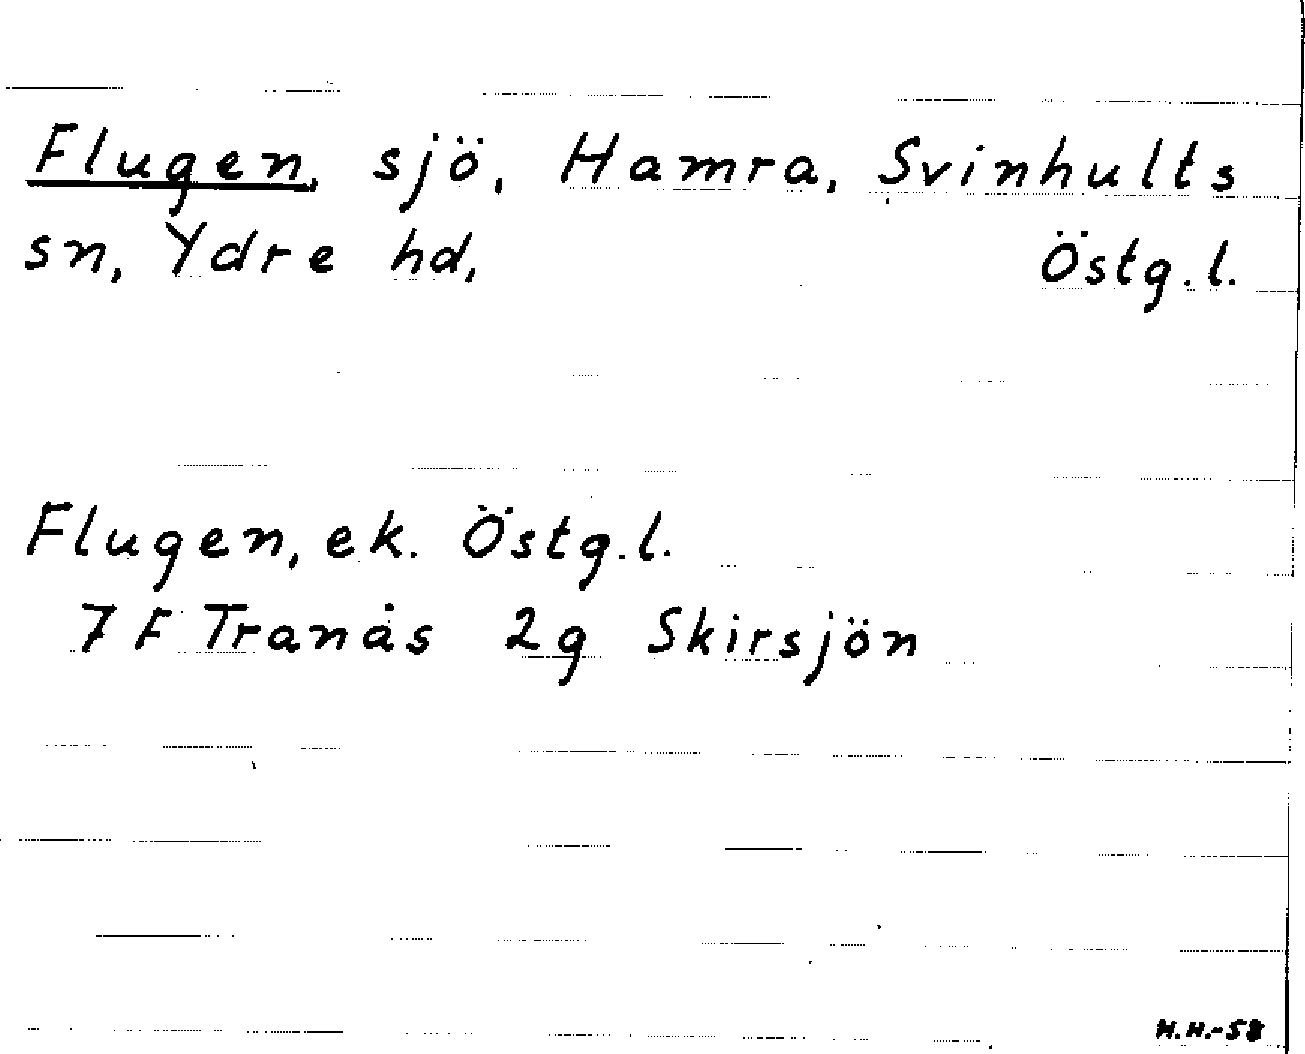 Flugen, sjö, Hamra, Svinhults
sn, Ydre hd, Östg.l.
Flugen, ek. Östg.l.
7 F Tranås 2g Skirsjön
H.H.-58